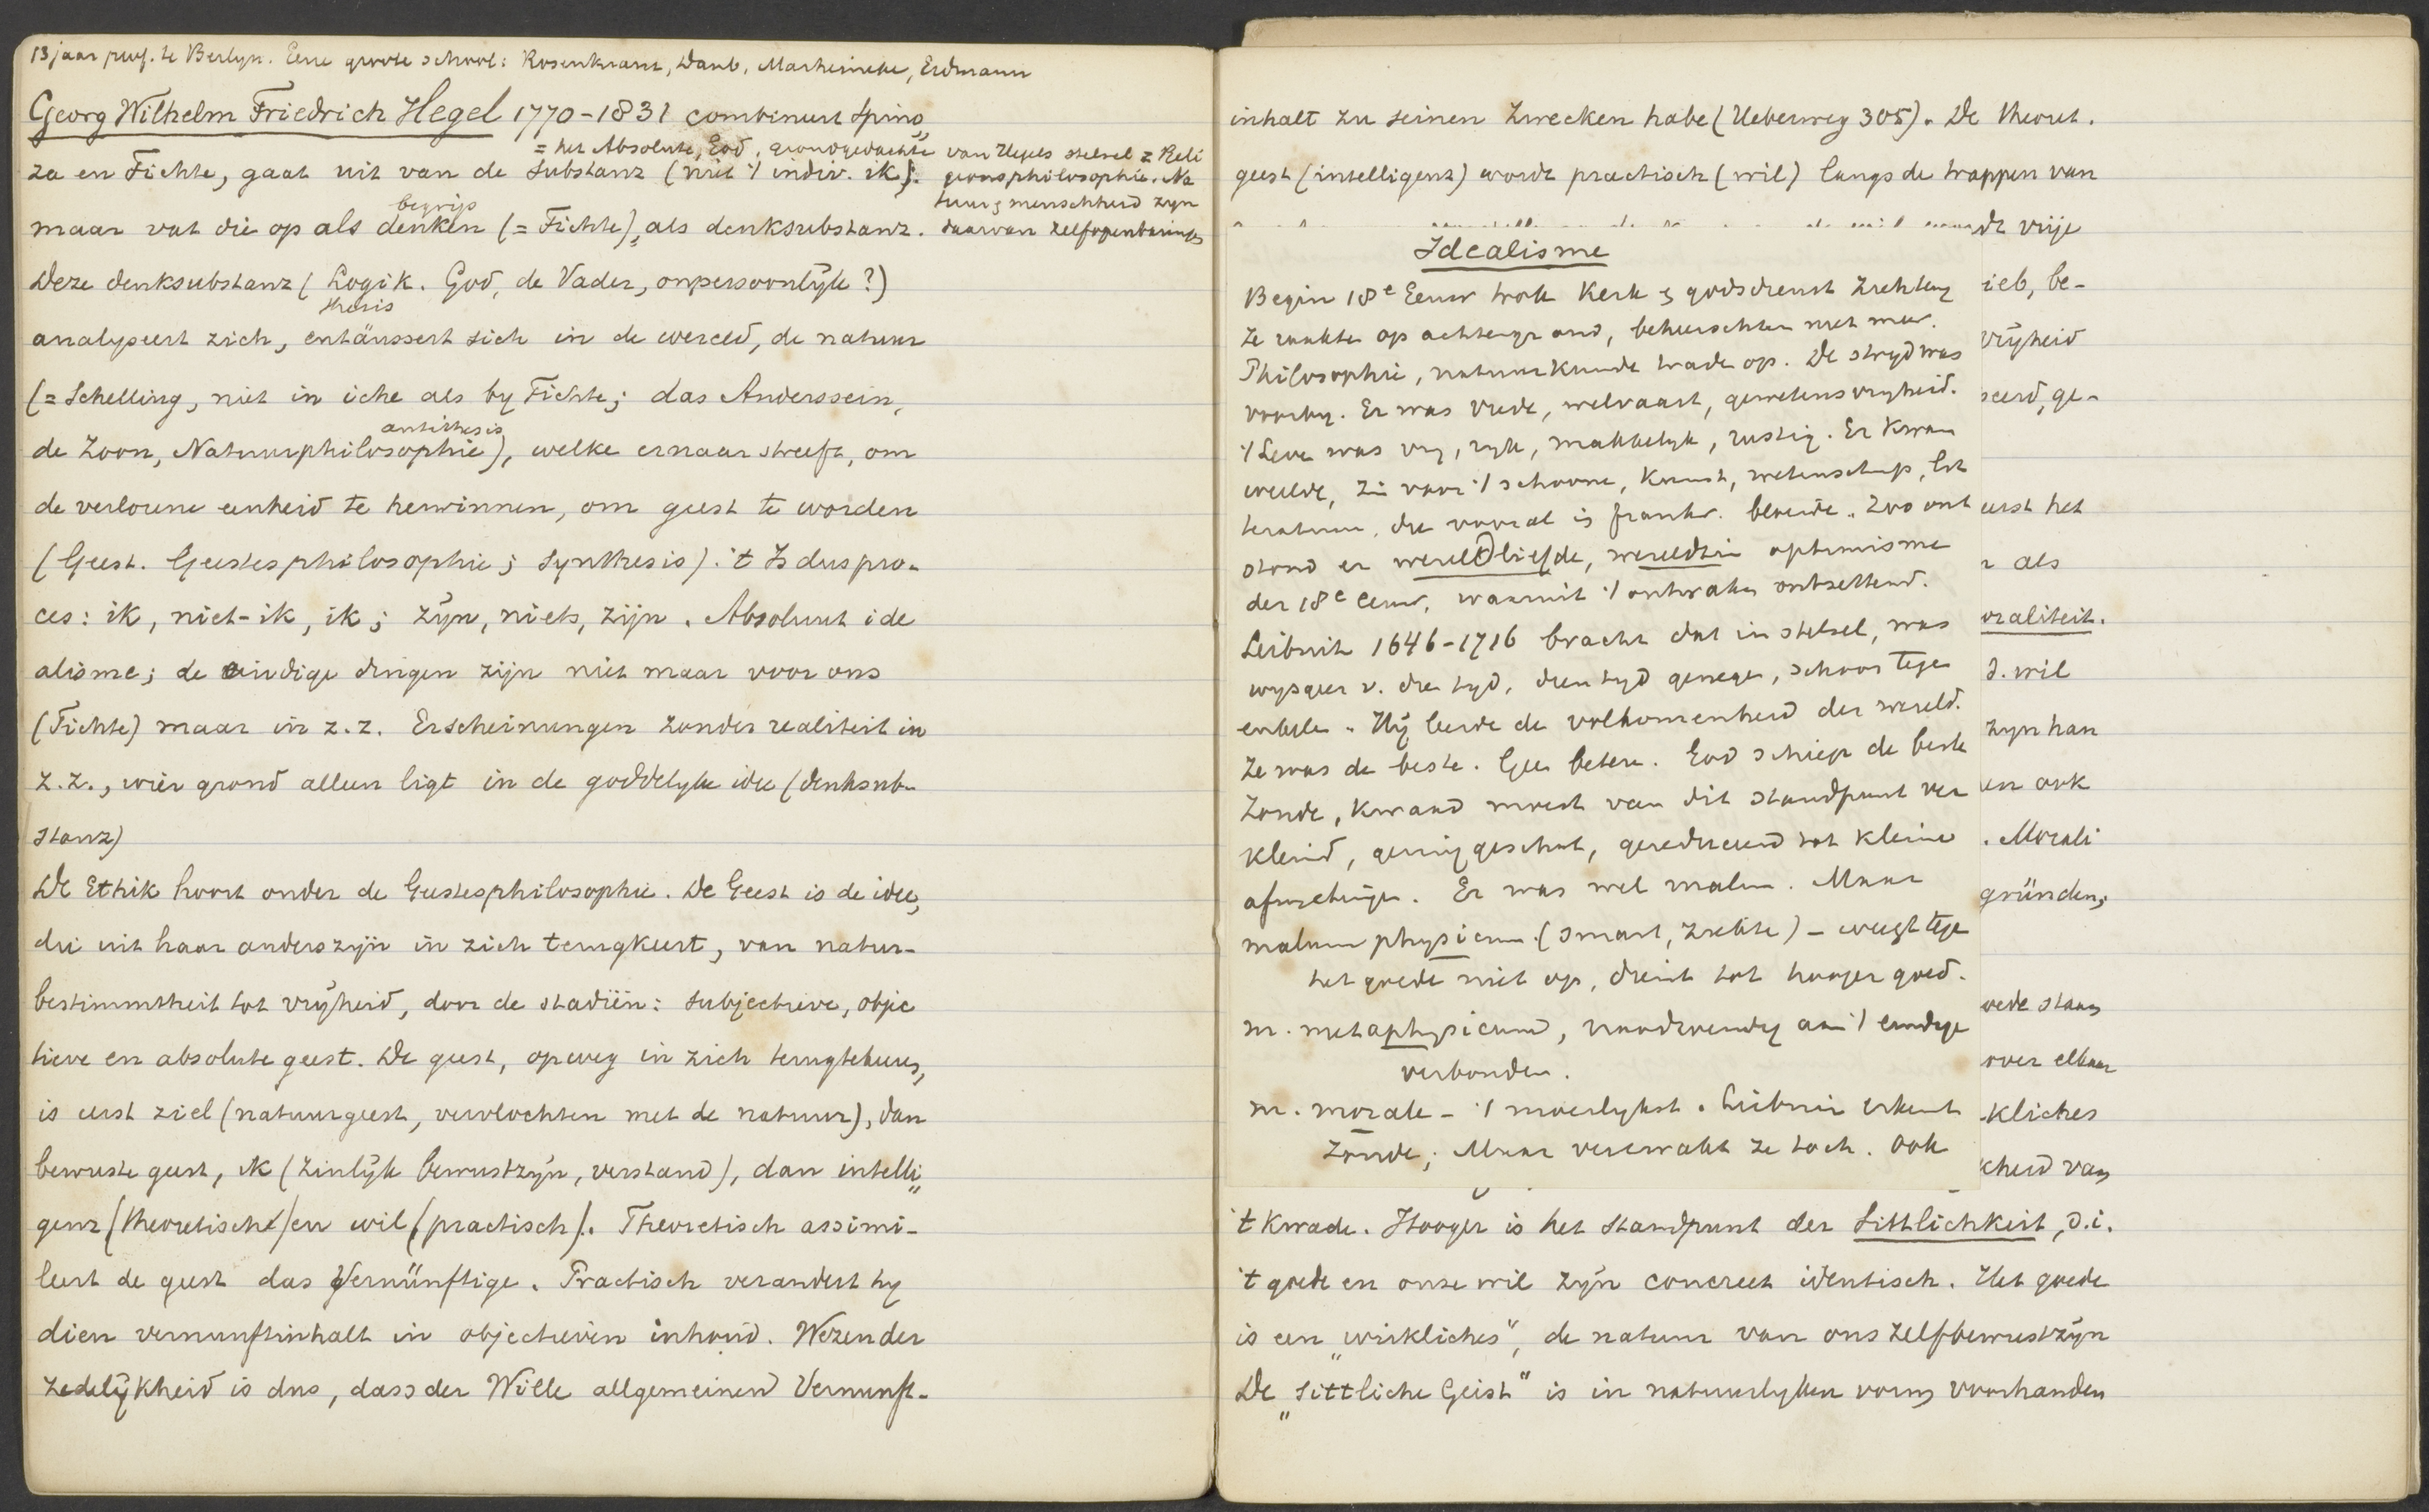 13 jaar prof. te Berlyn. Eene groote school: Rosenkranz, Daub, Marheineke, Erdmann
Georg Wilhelm Friedrich Hegel 1770-1831 combineert Spino„
= het Absolute, God, grondgedachte van Hegels stelsel = Reli
za en Fichte, gaat uit van de substanz (niet 't indiv. ik);
gionsphilosophie. Na
tuur & menschheid zyn
begrijp
maar vat die op als denken (= Fichte), als denksubstanz.
daarvan zelfopenbaringen
Deze denksubstanz (Logik. God, de Vader, onpersoonlÿk?)
thesis
analyseert zich, entäussert sich in de wereld, de natuur
(= Schelling, niet in iche als by Fichte; das Anderssein,
antithesis
de Zoon, Naturphilosophie), welke ernaar streeft, om
de verlorene eenheid te herwinnen, om geest te worden
(Geest. Geistesphilosophie; synthesis). 't Is dus pro-
ces: ik, niet-ik, ik; zÿn, niets, zijn. Absoluut ide
alisme; de eindige dingen zijn niet maar voor ons
(Fichte) maar in z.z. Erscheinungen zonder realiteit in
z.z., wier grond alleen ligt in de goddelyke idee (denksub-
stanz)
De Ethik hoort onder de Geistesphilosophie. De Geest is de idee,
die uit haar anderszÿn in zich terugkeert, van natur-
bestimmtheit tot vrÿheid, door de stadiën: subjectieve, objec
tieve en absolute geest. De geest, op weg in zich terugtekeeren,
is eerst ziel (natuurgeest, vervlochten met de natuur), dan
bewuste geest, ik (zinlÿk bewustzÿn, verstand), dan intelli„
genz (theoretisch) en wil (practisch). Theoretisch assimi-
leert de geest das Vernünftige. Practisch verandert hy
dien vernunftinhalt in objectieven inhoud. Wezen der
zedelÿkheid is dus, dass der Wille allgemeinen Vernunft-
inhalt zu seinen Zwecken habe (Ueberweg 305). De theoret.
geest (intelligenz) wordt practisch (wil) langs de trappen van
dt vrije
Idealisme
Begin 18e Eeuw trok Kerk & godsdienst zich terug
ieb, be-
Ze raakten op achtergrond, beheerschten niet meer.
vrÿheid
Philosophie, natuurkunde traden op. De stryd was
voorby. Er was vrede, welvaart, gewetensvryheid.
ceerd, ge-
't Leven was vry, ryk, makkelyk, rustig. Er kwam
weelde, zin voor 't schoone, kunst, wetenschap, lit
teratuur, die vooral in frankr. bloeide. Zoo ont
eerst het
stond er wereldliefde, wereldzin optimisme
r als
der 18e eeuw, waaruit 't ontwaken ontzettend.
oraliteit.
Leibnitz 1646-1716 bracht dat in stelsel, was
wysgeer v. dien tyd, dien tyd genegen,
d. wil
Hÿ leerde de volkomenheid der wereld.
zyn han
Ze was de beste. Geen betere. God schiep de beste
Zonde, kwaad moest van dit standpunt ver
en ook
kleind, gering geschat, gereduceerd tot kleine
. Morali
Er was wel malum. Maar
gründen,
malum physicum (smart, ziekte) - weegt tegen
het goede niet op, dient tot hooger goed.
m. metaphysicum, noodwendig aan 't eindige
oede staan
verbonden.
over elkaar
m. morale - 't moeilykst. Leibniz erkent
kliches
Zonde; Maar verzwakt ze toch. Ook
cheid van
't Kwade. Hooger is het standpunt der Sittlichkeit, d.i.
't goede en onze wil zÿn concreet identisch. Het goede
is een „wirkliches", de natuur van ons zelfbewustzÿn
De „sittliche Geist" is in natuurlyken vorm voorhanden